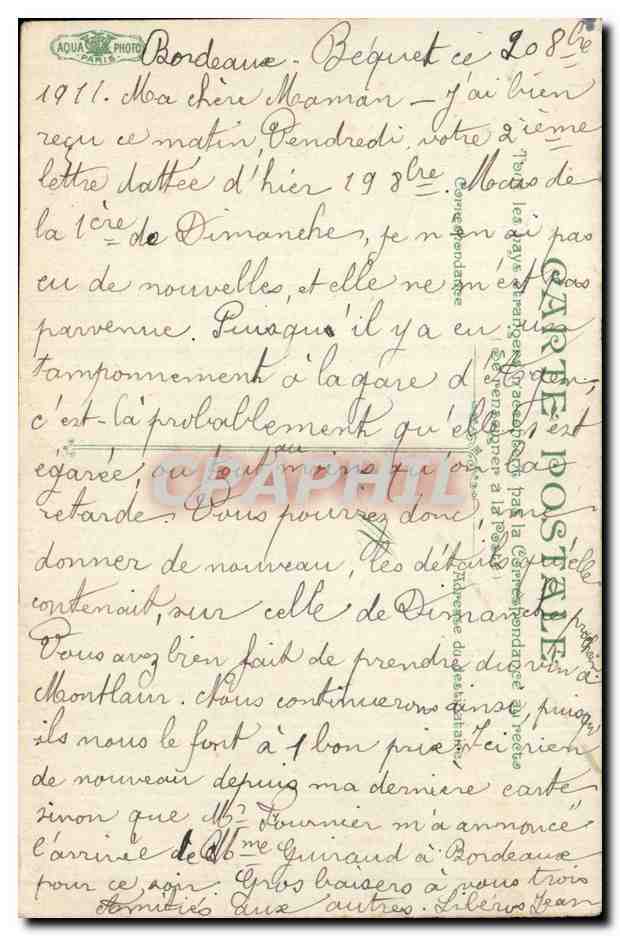 AQUA PHOTO
PARIS
Bordeaux - Béquet ce 20 8bre
1911. Ma chère Maman - J'ai bien
reçu ce matin, Vendredi, votre 2ième
lettre dattée d'hier 19 8bre. Mais de
la 1ère de Dimanche, je n'en ai pas
eu de nouvelles, et elle ne m'est pas
parvenue. Puisqu'il y a eu un
tamponnement à la gare d'Agen,
c'est-là probablement qu'elle s'est
égarée, ou tout au moins qu'on l'a
retardé. Vous pourrez donc, me
donner de nouveau, les détails qu'elle
contenait, sur celle de Dimanche prochain
Vous avez bien fait de prendre du vin à
Montlaur. Nous continuerons ainsi, puisqu'
ils nous le font à 1 bon prix. Ici rien
de nouveau depuis ma dernière carte
sinon que Mr Fournier m'a annoncé
l'arrivée de Mme Guiraud à Bordeaux
pour ce soir. Gros baisers à vous trois
Amitiés aux autres. Libéros Jean
CARTE POSTALE
Tous les pays étrangers n'acceptent pas la Correspondance au recto
(Se renseigner à la Poste)
Correspondance
Adresse du destinataire
CPAPHIL